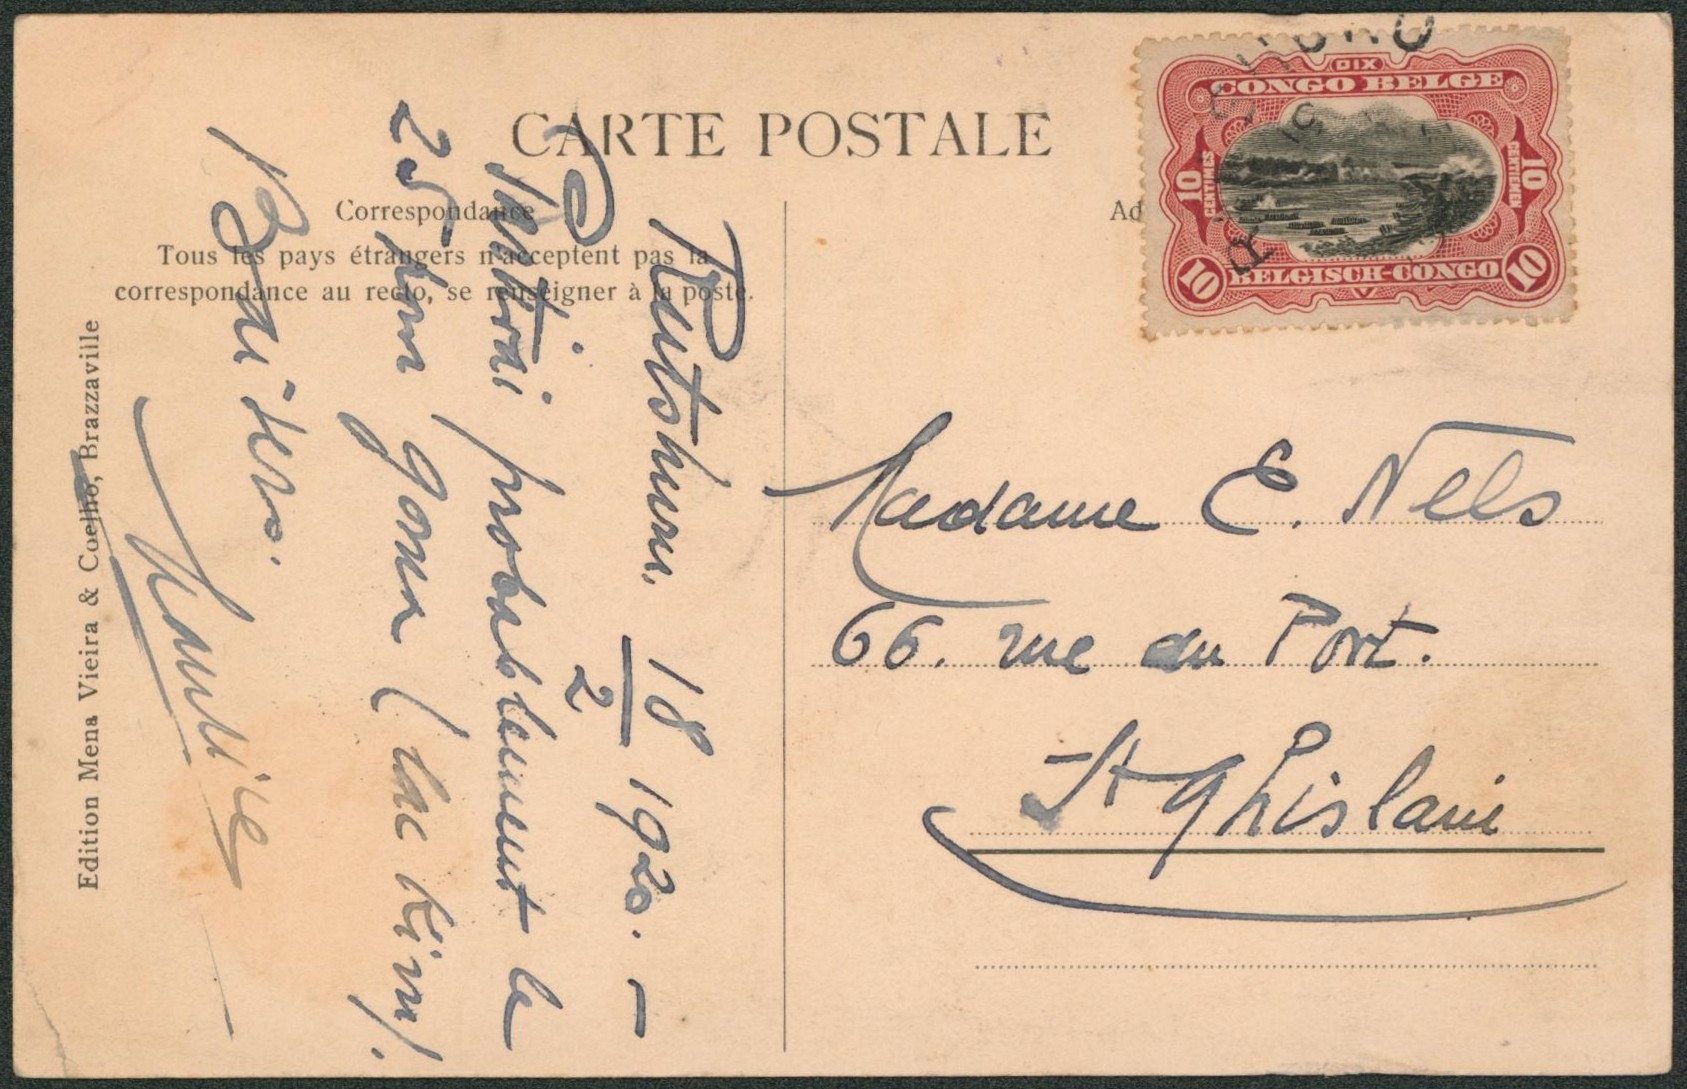 CARTE POSTALE
Correspondance
Tous les pays étrangers n'acceptent pas la
correspondance au recto, se renseigner à la poste.
Edition Mena Vieira & Coelho, Brazzaville
Rutshuru. 18/2 1920. –
Partirai probablement le
25 pour Goma (lac Kivu).
Baisers.
Ad
DIX
CONGO BELGE
10 CENTIMES
10 CENTIEMEN
10 BELGISCH-CONGO 10
V
Madame E. Nels
66. rue du Port.
St Ghislain